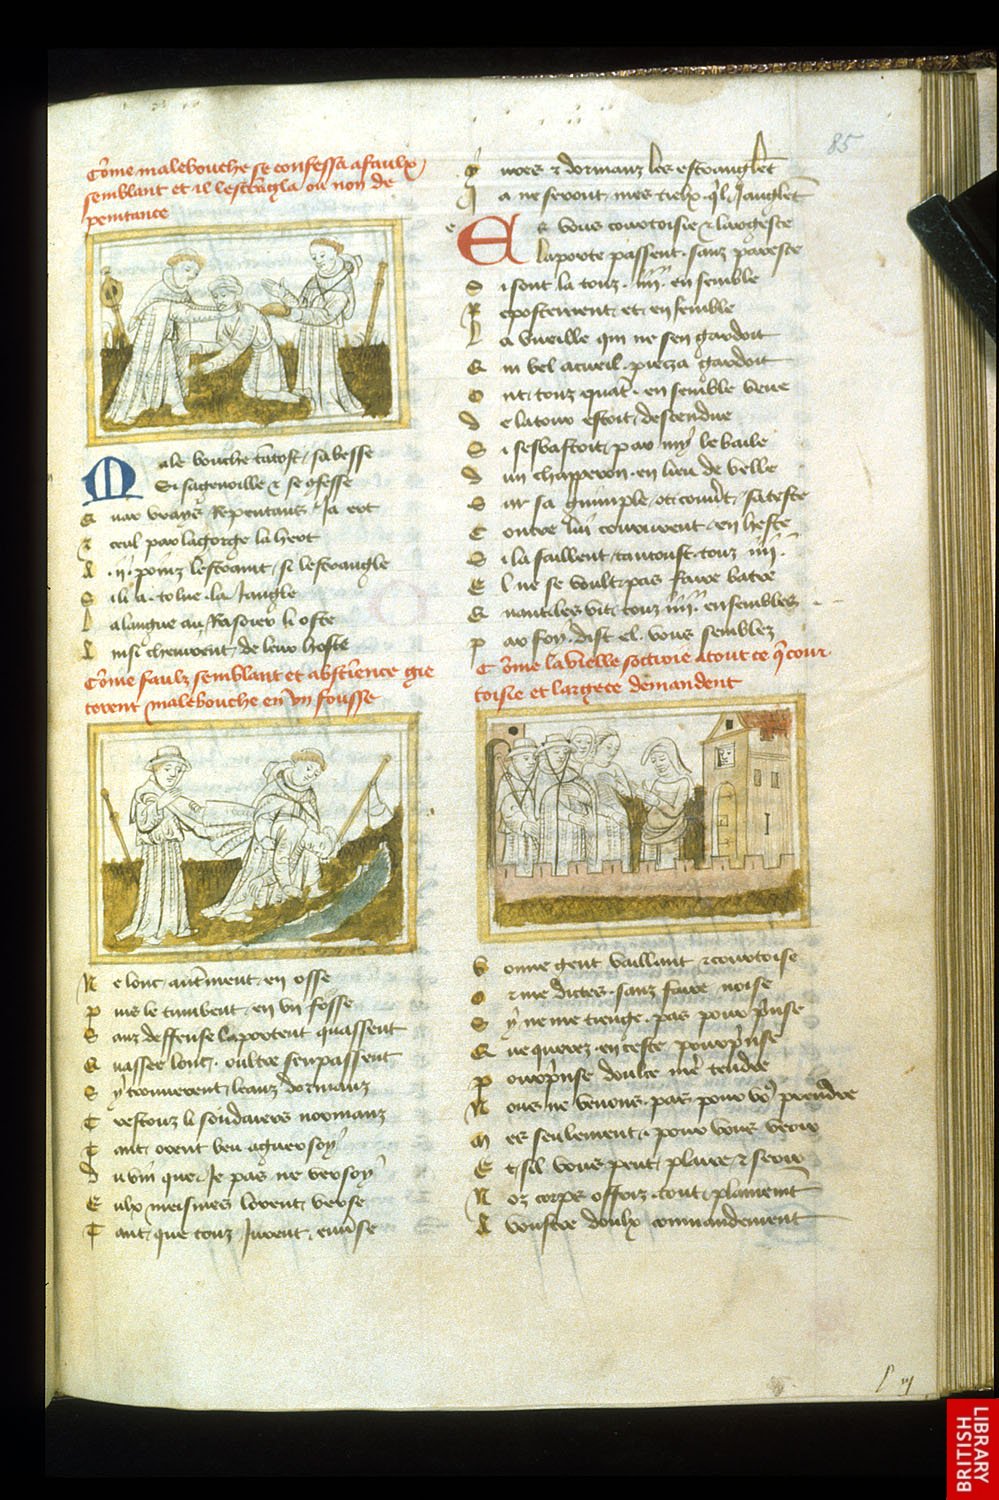 85
Cōme malebouche se confessa a faulx
semblant et il lestrāgla ou non de
penitance
Male bouche tātost sabesse
Si sagenoille ⁊ se ꝯfesse
Quar vrays repentans ja ert
⁊ ceul par la gorge la hert
A .ii. poinz lestraint si lestrangle
Si li a tolue la jangle
La langue au rasoier li oste
Ainsi chevirent de leur hoste
Cōme faulz semblant et abstinence gie
terent malebouche en vn fousse
Ne lont autrement en osse
Puis le tumbent en vn fosse
Sanz deffense la porte quassent
Quassee lont oultre sen passent
Sy trouuerent leanz dormanz
Trestouz li soudaiers normanz
Tant orent beu a guersoy
Du vin que je pas ne versoy
Eulx meismes lorent verse
Tant que touz jurent enuerse
yures ⁊ dormanz les estranglent
Ja ne seront mes tielx q̄l janglent
Es vous courtoisie ⁊ largesce
La porte passent sanz paresce
Si sont la touz .iiii. en semble
Repostement et en semble
La vieille qui ne sen gardoit
Qui bel acueil pieca gardoit
Ont touz quatre en semble veue
De la tour estoit descendue
Si sesbastoit par my le baile
Dun chapperon en lieu de velle
Sur sa guimple ot couuert sa teste
Contre lui coururent en heste
Si lassaillent tantoust touz .iiii.
El ne se voult pas faire batre
Quant les vit touz .iiii. ensembles
Par foy dist el vous semblez
Cōme la vielle sottroie a tout ce q̄ cour
toisie et largece demandent
Bonne gent vaillant ⁊ courtoise
Or me dictes sanz faire noise
Sy ne me tienge pas pour prinse
Que querez en ceste pourprinse
Pourprinse doulce mere tendre
Nous ne venons pas pour vous prendre
Mes seulement pour vous veoir
Et sil vous peut plaire ⁊ seoir
Noz corps offrir tout plainement
A vostre doulx commandement
BRITISH
LIBRARY